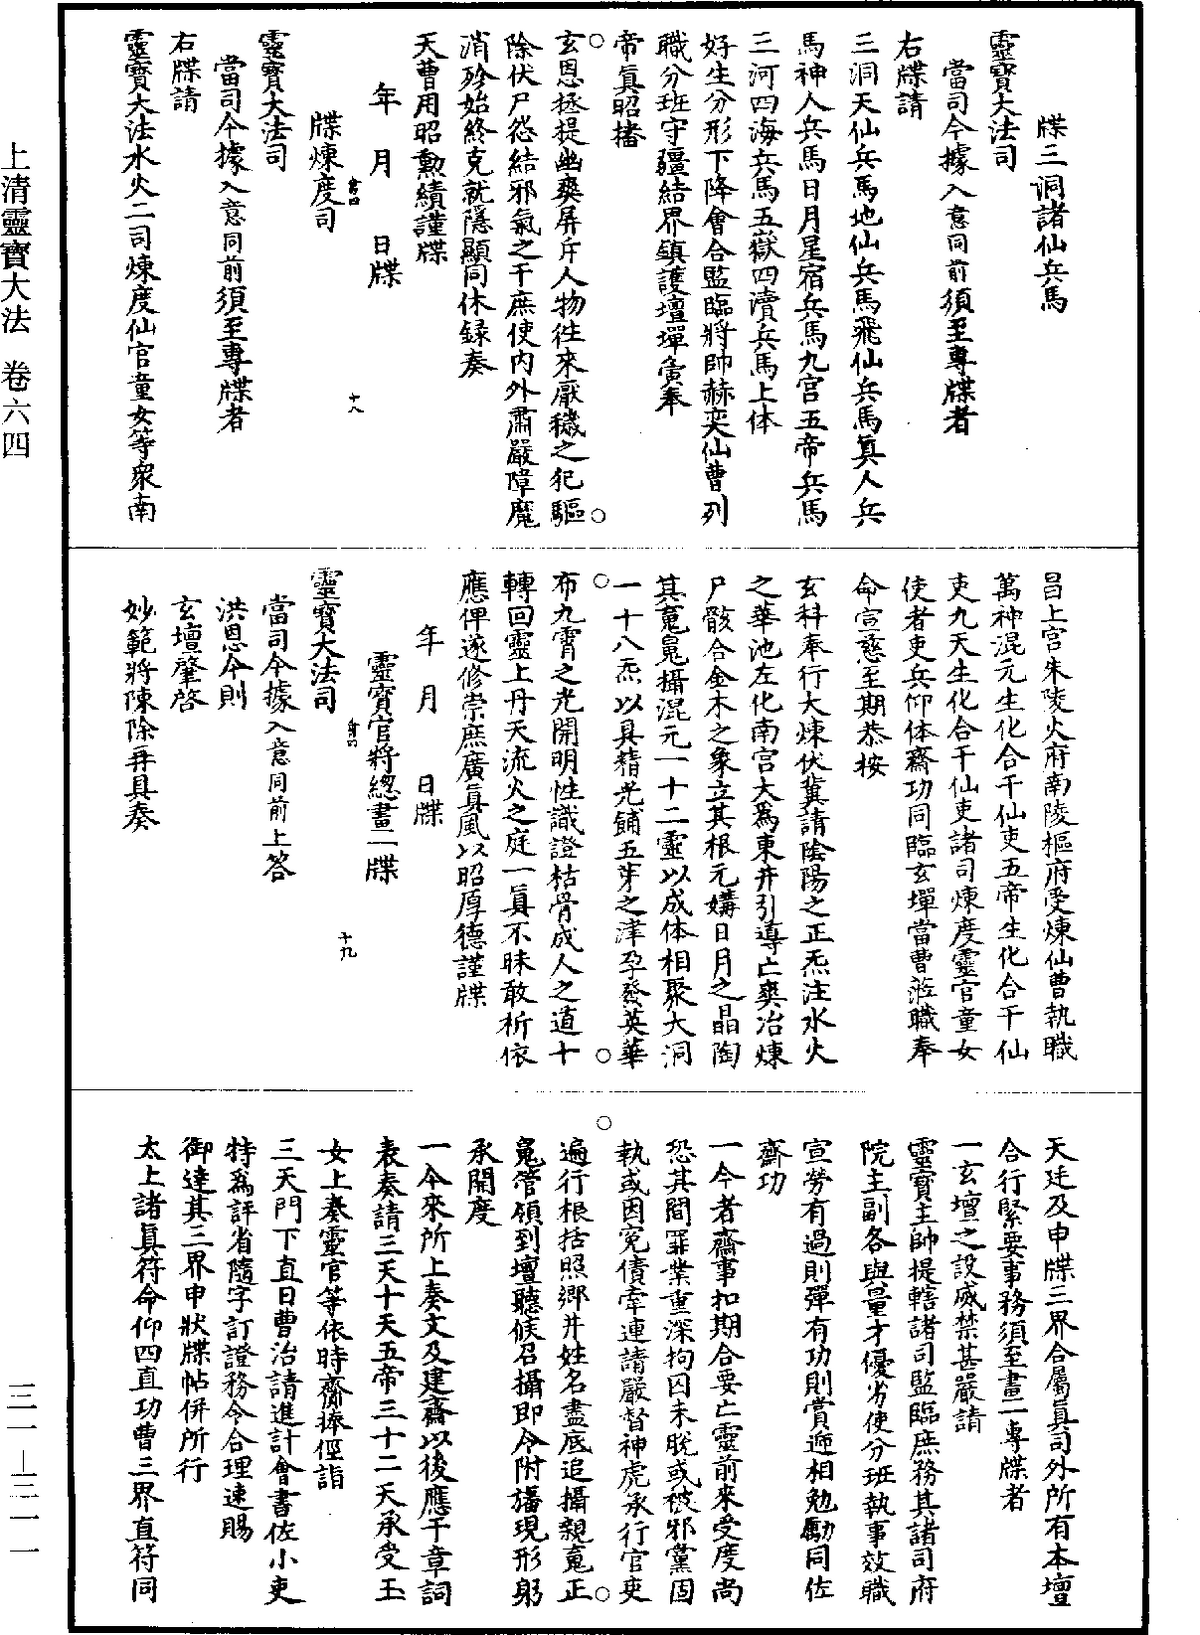 上清靈寶大法　卷六四
牒三洞諸仙兵馬
靈寶大法司
當司今據入意同前須至專牒者
右牒請
三洞天仙兵馬地仙兵馬飛仙兵馬真人兵
馬神人兵馬日月星宿兵馬九宮五帝兵馬
三河四海兵馬五嶽四瀆兵馬上体
好生分形下降會合監臨將帥赫奕仙曹列
職分班守疆結界鎮護壇墠寅奉
帝真昭播
玄恩拯提幽爽屏斥人物徃來厭穢之犯驅
除伏尸慫結邪氣之干庶使內外肅嚴障魔
消殄始終克就隱顯同休録奏
天曹用昭勳績謹牒
年　月　日牒
牒煉度司
靈寶大法司
當司今據入意同前須至專牒者
右牒請
靈寶大法水火二司煉度仙官童女等衆南
十八
昌上宮朱陵火府南陵樞府受煉仙曹執職
萬神混元生化合干仙吏五帝生化合干仙
吏九天生化合干仙吏諸司煉度靈官童女
使者吏兵仰体齋功同臨玄墠當曹涖職奉
命宣慈至期恭按
玄科奉行大煉伏冀請陰陽之正炁注水火
之華池左化南宮大爲東井引導亡爽冶煉
尸骸合金木之象立其根元媾日月之晶陶
其䰟魄攝混元一十二靈以成体相聚大洞
一十八炁以具精光鋪五芽之津孕發英華
布九霄之光開明性識證枯骨成人之道十
轉回靈上丹天流火之庭一真不昧敢祈依
應俾遂修崇庶廣真風以昭厚德謹牒
年　月　日牒
靈寶官將總畫一牒
靈寶大法司
當司今據入意同前上答
洪恩今則
玄壇肇啓
妙範將陳除再具奏
十九
天廷及申牒三界合屬真司外所有本壇
合行緊要事務須至畫一專牒者
一玄壇之設威禁甚嚴請
靈寶主帥提轄諸司監臨庶務其諸司府
院主副各與量才優劣使分班執事效職
宣勞有過則彈有功則賞遞相勉勵同佐
齋功
一今者齋事扣期合要亡靈前來受度尚
恐其間罪業重深拘囚未脫或被邪黨固
執或因冤債牽連請嚴督神虎承行官吏
遍行根括照鄉井姓名盡底追攝親䰟正
魄管領到壇聽候召攝即令附旛現形躬
承開度
一今來所上奏文及建齋以後應干章詞
表奏請三天十天五帝三十二天承受玉
女上奏靈官等依時齎捧徑詣
三天門下直日曹治請進計會書佐小吏
特爲評省隨字訂證務令合理速賜
御達其三界申狀牒帖併所行
太上諸真符命仰四直功曹三界直符同
三一—三一一